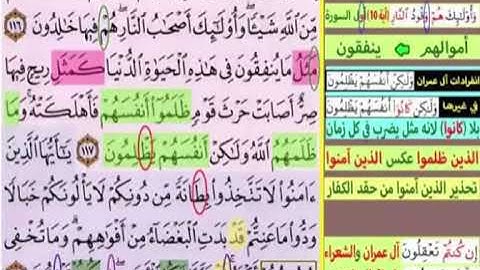 مِّنَ ٱللَّهِ شَيْـًٔا ۖ وَأُو۟لَـٰٓئِكَ أَصْحَـٰبُ ٱلنَّارِ ۚ هُمْ فِيهَا خَـٰلِدُونَ ١١٦
مَثَلُ مَا يُنفِقُونَ فِى هَـٰذِهِ ٱلْحَيَوٰةِ ٱلدُّنْيَا كَمَثَلِ رِيحٍ فِيهَا
صِرٌّ أَصَابَتْ حَرْثَ قَوْمٍ ظَلَمُوٓا۟ أَنفُسَهُمْ فَأَهْلَكَتْهُ ۚ وَمَا
ظَلَمَهُمُ ٱللَّهُ وَلَـٰكِنْ أَنفُسَهُمْ يَظْلِمُونَ ١١٧ يَـٰٓأَيُّهَا ٱلَّذِينَ
ءَامَنُوا۟ لَا تَتَّخِذُوا۟ بِطَانَةً مِّن دُونِكُمْ لَا يَأْلُونَكُمْ خَبَالًا
وَدُّوا۟ مَا عَنِتُّمْ قَدْ بَدَتِ ٱلْبَغْضَآءُ مِنْ أَفْوَٰهِهِمْ وَمَا تُخْفِى
وَأُو۟لَـٰٓئِكَ هُمْ وَقُودُ ٱلنَّارِ (آية 10) أول السورة
أموالهم ← ينفقون
انفرادات آل عمران وَلَـٰكِنْ أَنفُسَهُمْ يَظْلِمُونَ
في غيرها وَلَـٰكِن كَانُوٓا۟ أَنفُسَهُمْ يَظْلِمُونَ
بلا (كانوا) لانه مثل يضرب في كل زمان
الذين ظلموا عكس الذين آمنوا
تحذير الذين آمنوا من حقد الكفار
إِن كُنتُمْ تَعْقِلُونَ آل عمران والشعراء